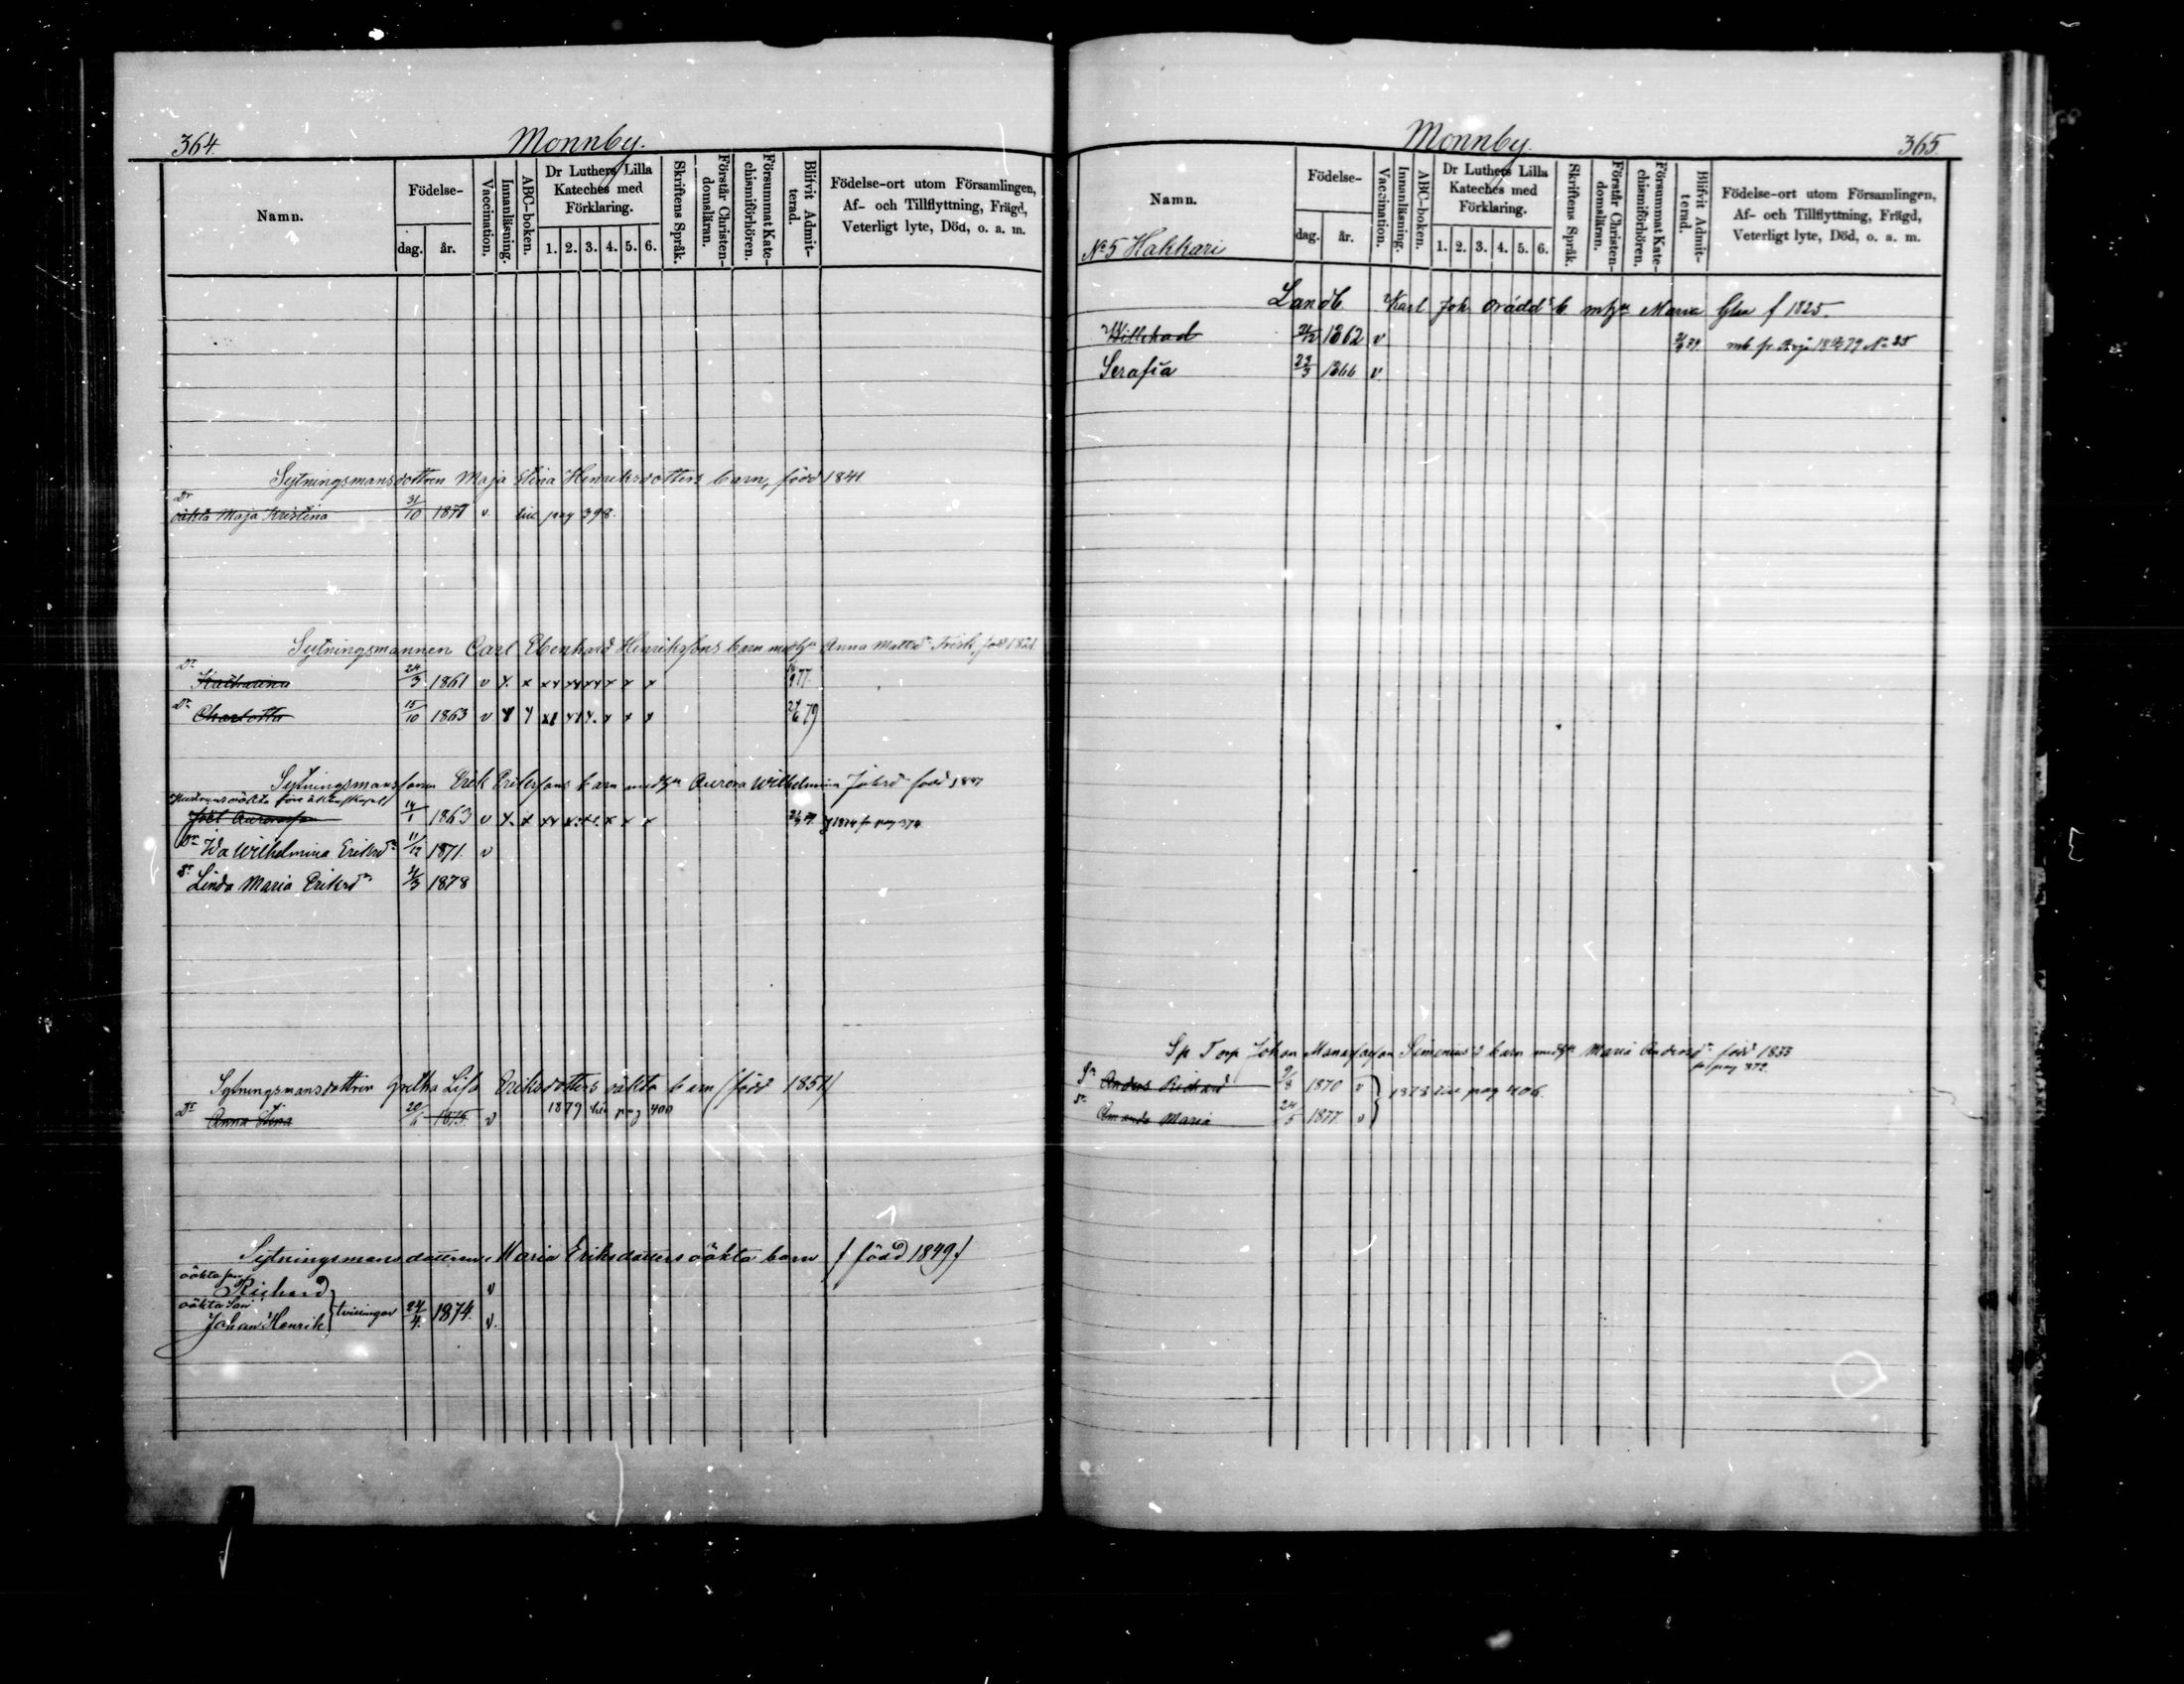 364.
Monnby.
Namn.
Födelse-
dag.
år.
Vaccination.
Innanläsning.
ABC-boken.
Dr Luthers Lilla
Kateches med
Förklaring.
1. 2. 3. 4. 5. 6.
Skriftens Språk.
Förstår Christen-
domsläran.
Försummat Kate-
chismiförhören.
Blifvit Admit-
terad.
Födelse-ort utom Församlingen,
Af- och Tillflyttning, Frägd,
Veterligt lyte, Död, o. a. m.
Sytningmansdottren Maja Stina Henriksdotters barn, född 1841
Dr
oäkta Maja Kristina 31/10 1877 v. pag 398.
Sytningsmannen Carl Ebenhard Henrikssons barn Anna Frisk, född
Dr Katharina 24/3 1861 v x. x xx xx xx x x x 77.
Dr Charlotta 15/10 1863 v x x x x x 79
Sytningsmanssonen Erik Erikssons barn Aurora Wilhelmina född
Joel 14/1 1863 v x. x xx x x x 1874 fr pag 374
Dr Ida Wilhelmina Eriksdr 11/12 1871. v
Dr Linda Maria Eriksdr 1878
Sytningsmansdottren Gretha Lisa Eriksdotters oäkta barn (född 1851)
Dr Anna Stina 20/6 1875. v 1879 pag 400
Sytningsmansdottrens Maria Eriksdotters oäkta barn / född 1849 /
oäkta son
Richard v
oäkta son
Johan Henrik tvillingar 24/4. 1874. v.
Monnby.
365.
Namn.
Födelse-
dag.
år.
Vaccination.
Innanläsning.
ABC-boken.
Dr Luthers Lilla
Kateches med
Förklaring.
1. 2. 3. 4. 5. 6.
Skriftens Språk.
Förstår Christen-
domsläran.
Försummat Kate-
chismiförhören.
Blifvit Admit-
terad.
Födelse-ort utom Församlingen,
Af- och Tillflyttning, Frägd,
Veterligt lyte, Död, o. a. m.
No 5 Hakkari
Landb. Karl Joh Orädds b. Maria f 1825.
Willehad 1862 v 79 No 25
Serafia 23/3 1866 v.
Sp Torp Johan Manasson Simenius's barn Maria Andersdr född 1833
fr pag 372
Sn Anders Richard 9/8 1870 v 1878 pag 406.
Dr Amanda Maria 24/5 1877 v